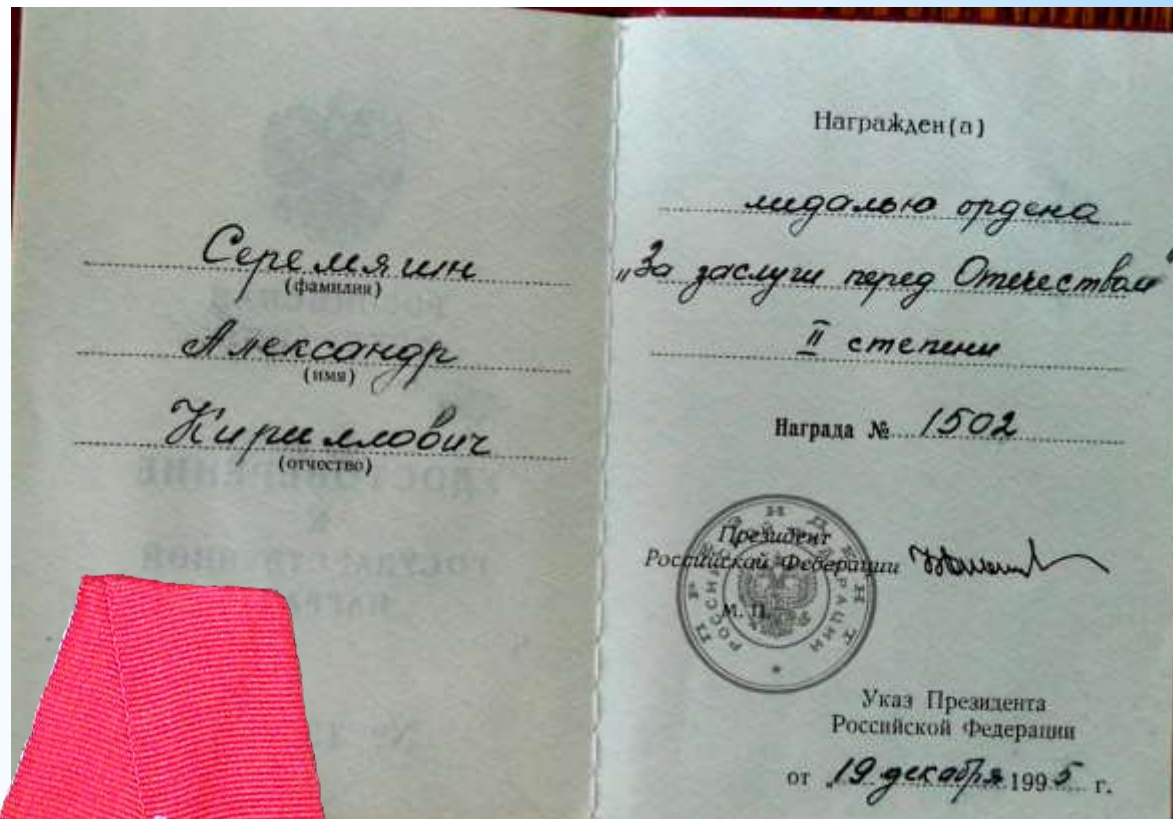 Серемягин
(фамилия)
Александр
(имя)
Кириллович
(отчество)
Награжден(а)
медалью ордена
„За заслуги перед Отечеством"
II степени
Награда № 1502
Президент
Российской Федерации
М. П.
ПРЕЗИДЕНТ
РОССИЙСКАЯ ФЕДЕРАЦИЯ
Указ Президента
Российской Федерации
от 19 декабря 1995 г.